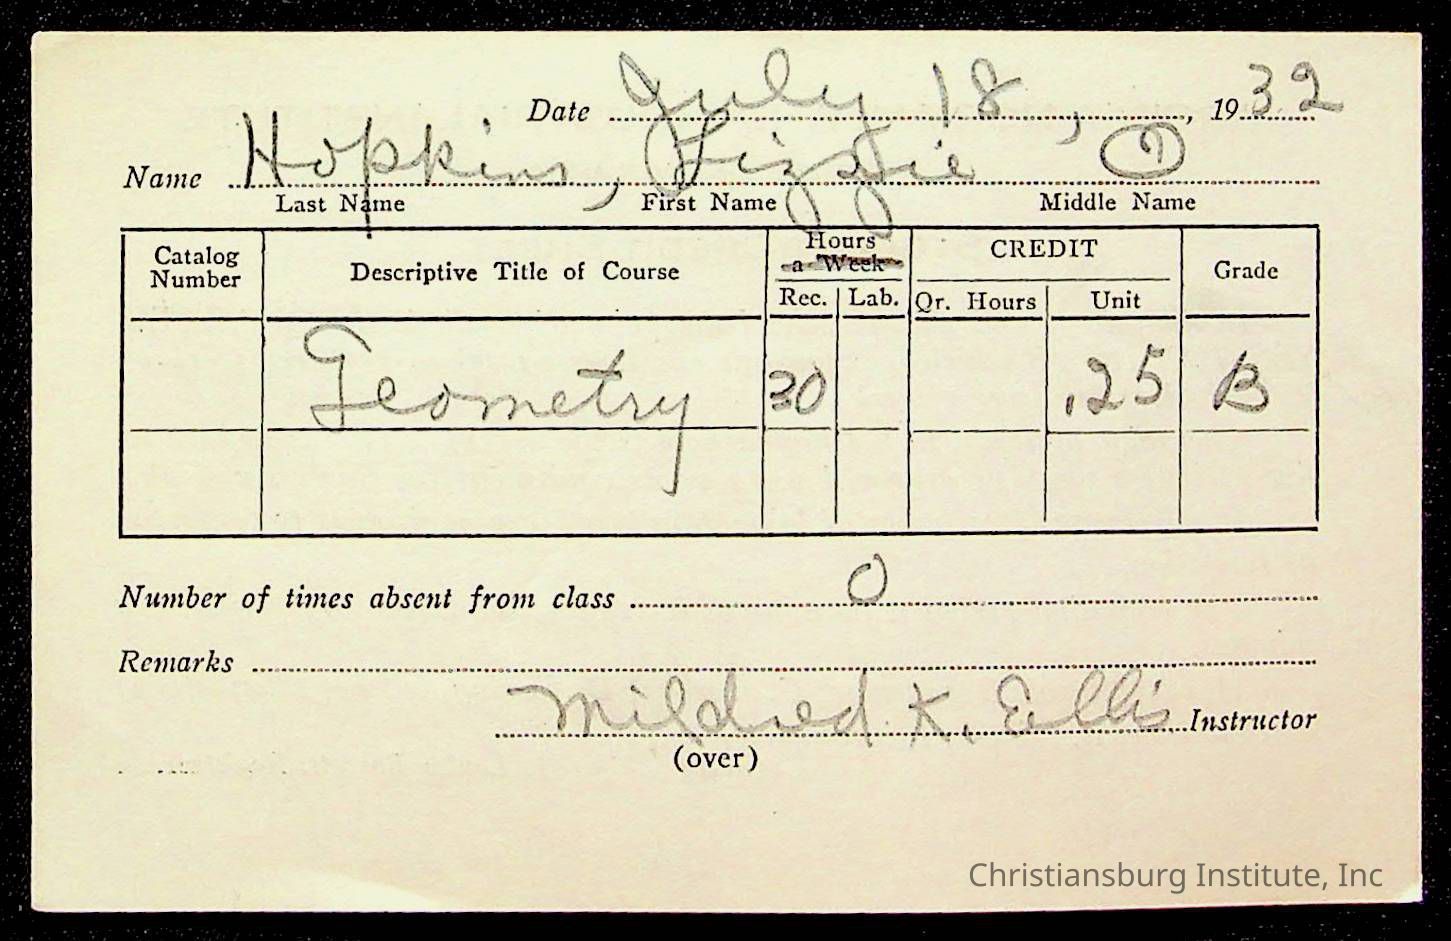 Date July 18, 1932
Name Hopkins, Lizzie
Last Name First Name Middle Name
Catalog Number Descriptive Title of Course Hours a Week CREDIT Grade
Rec. Lab. Qr. Hours Unit
Geometry 30 .25 B
Number of times absent from class 0
Remarks
Mildred K. Ellis Instructor
(over)
Christiansburg Institute, Inc